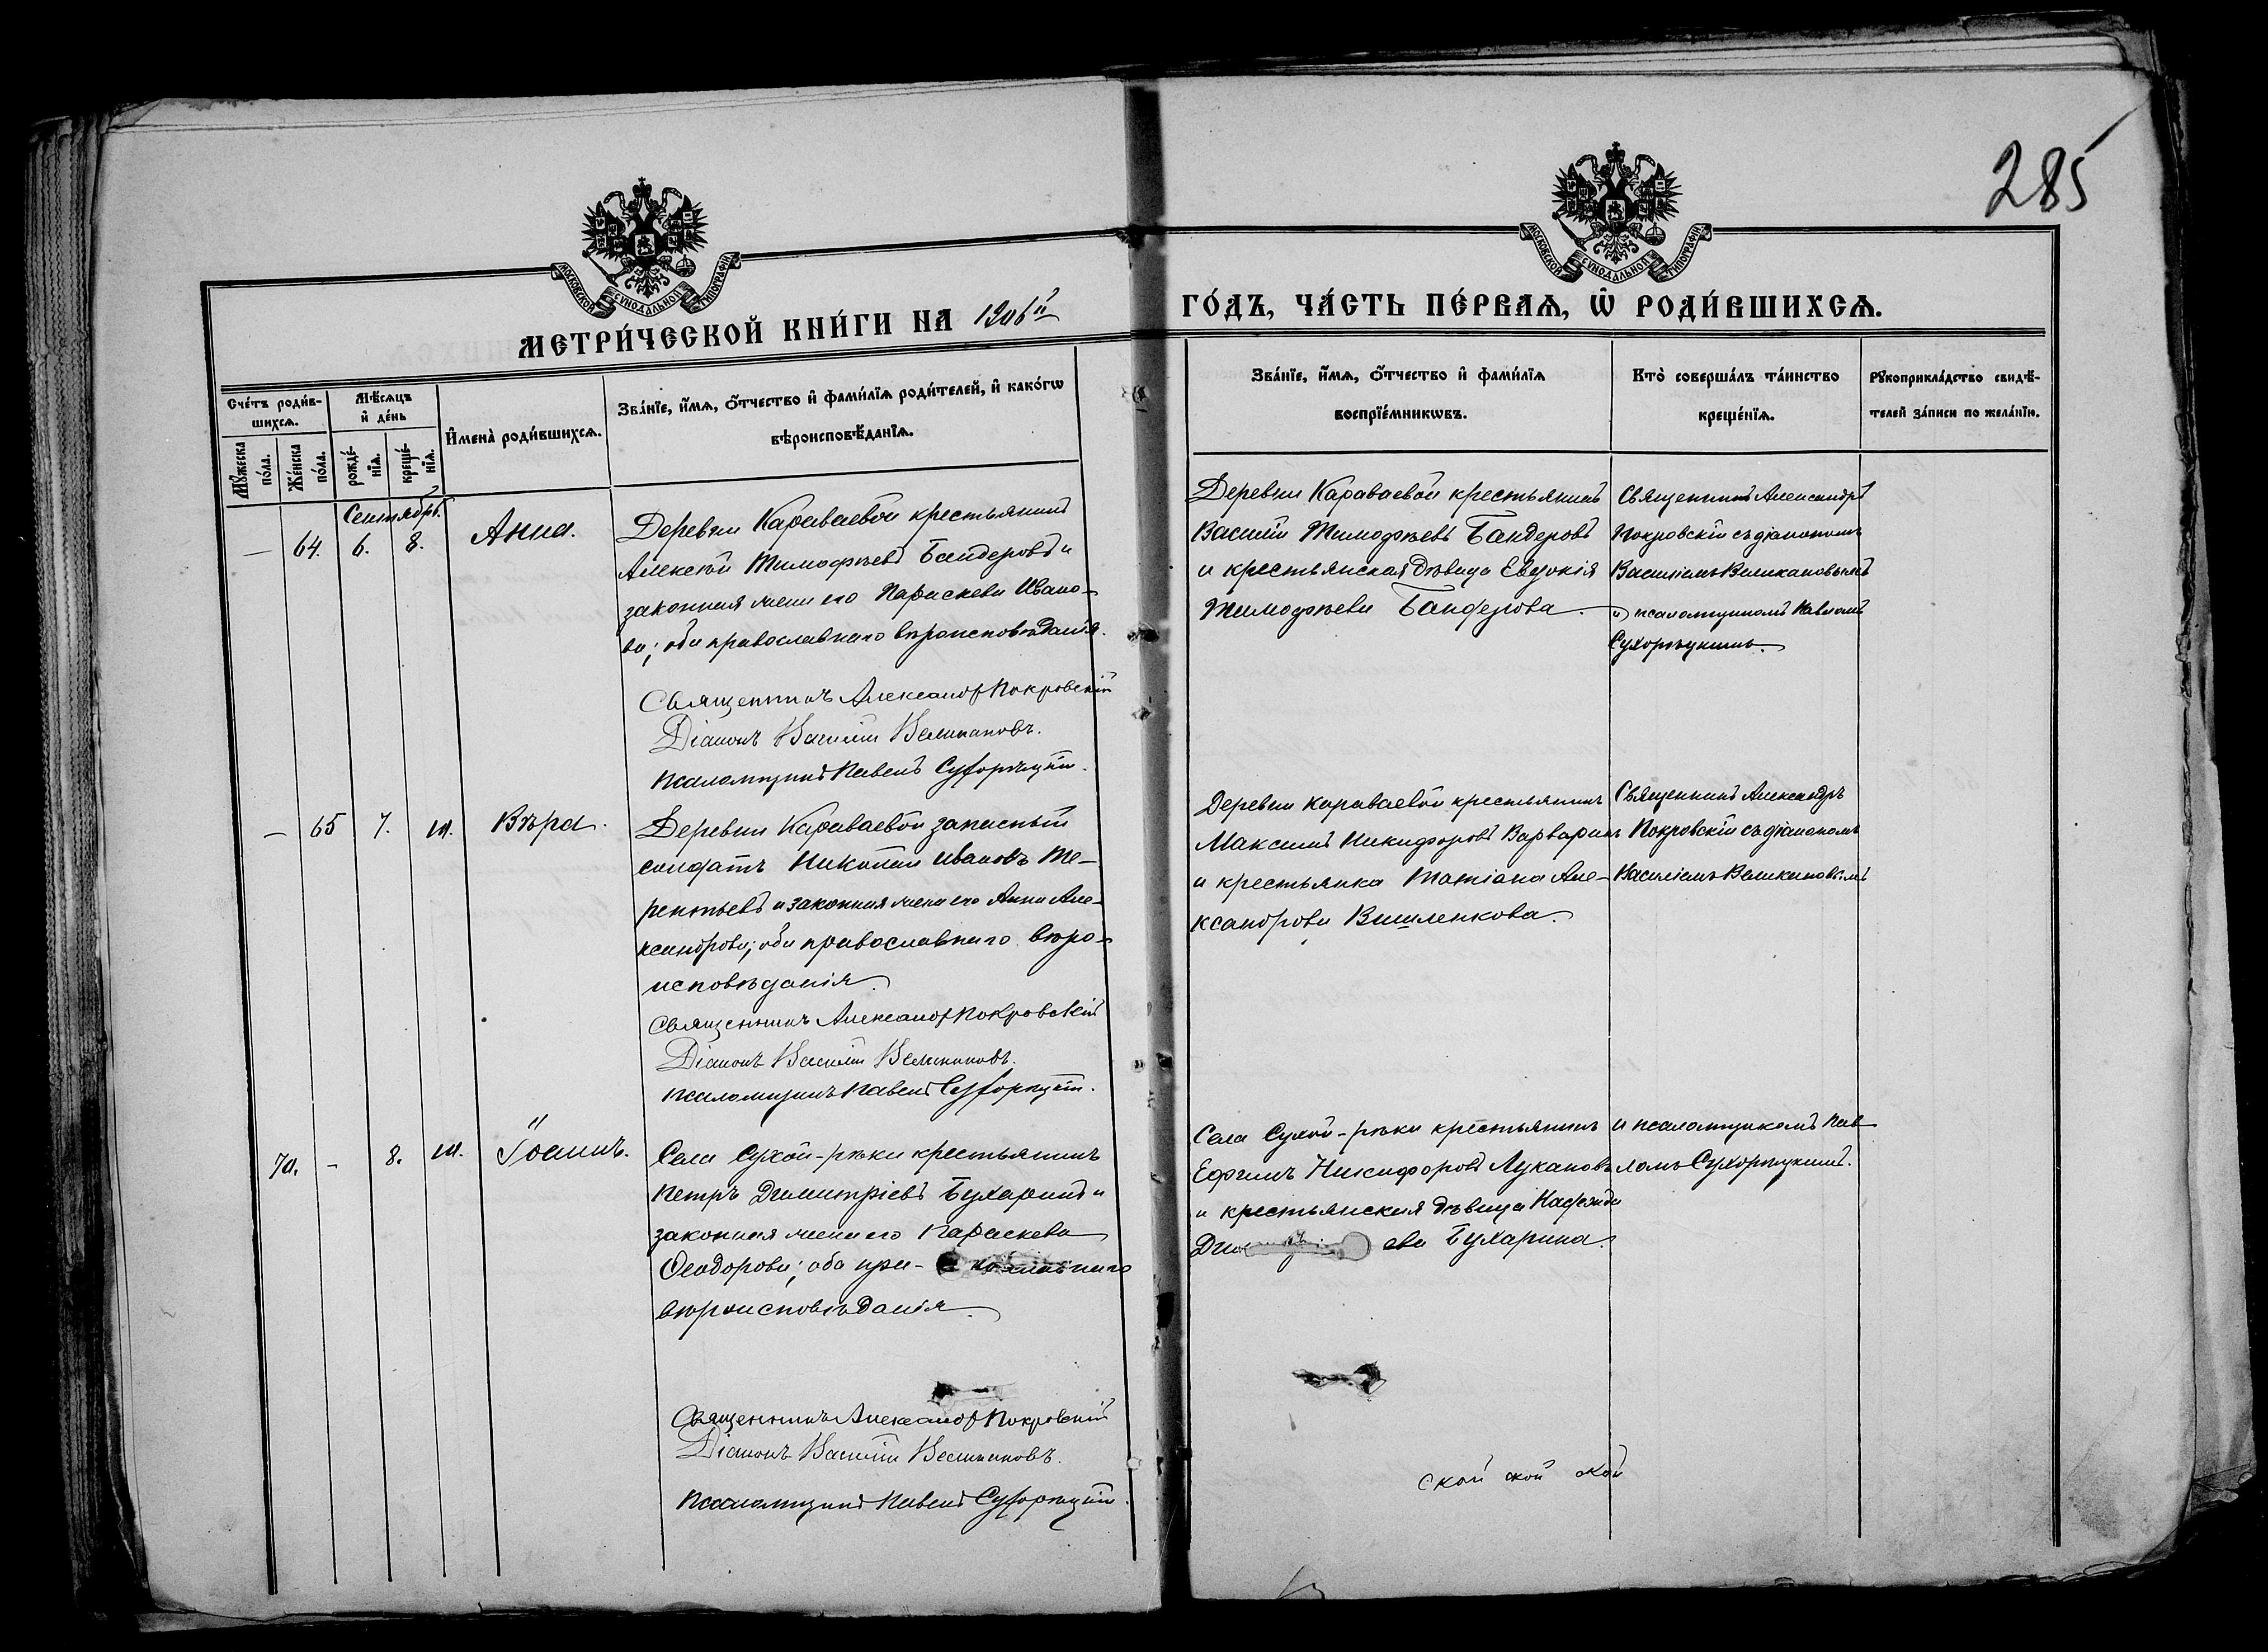 285
МОСКОВСКОЙ СѴНОДАЛЬНОЙ ТИПОГРАФІИ
МОСКОВСКОЙ СѴНОДАЛЬНОЙ ТИПОГРАФІИ
МЕТРИ́ЧЕСКОЙ КНИ́ГИ НА 1906й
ГО́ДЪ, ЧА́СТЬ ПЕ́РВАѦ, Ѿ РОДИ́ВШИХСѦ.
Сче́тъ роди́в-
шихсѧ.
Мѣ́сѧцъ
и҆ де́нь
Мꙋ́жеска
по́ла.
Же́нска
по́ла.
рожде́-
нїѧ.
креще́-
нїѧ.
И҆мена̀ роди́вшихсѧ.
Зва́нїе, и҆́мѧ, ѻ҆́тчество и҆ фами́лїѧ роди́телей, и҆ како́гѡ
вѣроисповѣ́данїѧ.
Зва́нїе, и҆́мѧ, ѻ҆́тчество и҆ фами́лїѧ
воспрїе́мникѡвъ.
Кто̀ соверша́лъ та́инство
креще́нїѧ.
Рꙋкоприкла́дство свидѣ́-
телей за́писи по жела́нїю.
Сентябрь.
— 64. 6. 8. Анна.
Деревни Караваевой крестьянинъ
Алексѣй Тимофѣевъ Бандеровъ и
законная жена его Параскева Ивано-
ва; оба православнаго вѣроисповѣданія.
Священникъ Александръ Покровскій
Діаконъ Василій Великановъ.
Псаломщикъ Павелъ Сухорѣцкій.
Деревни Караваевой крестьянинъ
Василій Тимофѣевъ Бандеровъ
и крестьянская дѣвица Евдокія
Тимофѣева Бандерова.
Священникъ Александръ
Покровскій съ діакономъ
Василіемъ Великановымъ
и псаломщикомъ Павломъ
Сухорѣцкимъ.
— 65 7. Вѣра.
Деревни Караваевой запасный
солдатъ Николай Ивановъ Те-
рентьевъ и законная жена его Анна Але-
ксандрова; оба православнаго вѣро-
исповѣданія.
Священникъ Александръ Покровскій
Діаконъ Василій Великановъ.
Псаломщикъ Павелъ Сухорѣцкій.
Деревни Караваевой крестьянинъ
Максимъ Никифоровъ Варваринъ
и крестьянка Татіана Але-
ксандрова Вишленкова.
Священникъ Александръ
Покровскій съ діакономъ
Василіемъ Великановымъ
70. - 8. Іоаннъ.
Села Сухой-рѣки крестьянинъ
Петръ Димитріевъ Бухаринъ и
законная жена его Параскева
Ѳеодорова; оба пра- вославнаго
вѣроисповѣданія.
Священникъ Александръ Покровскій
Діаконъ Василій Великановъ.
Псаломщикъ Павелъ Сухорѣцкій.
Села Сухой-рѣки крестьянинъ
Ефимъ Никифоровъ Лукановъ
и крестьянская дѣвица
ева Бухарина.
и псаломщикомъ Пав
ломъ Сухорѣцкимъ.
ской ской ской